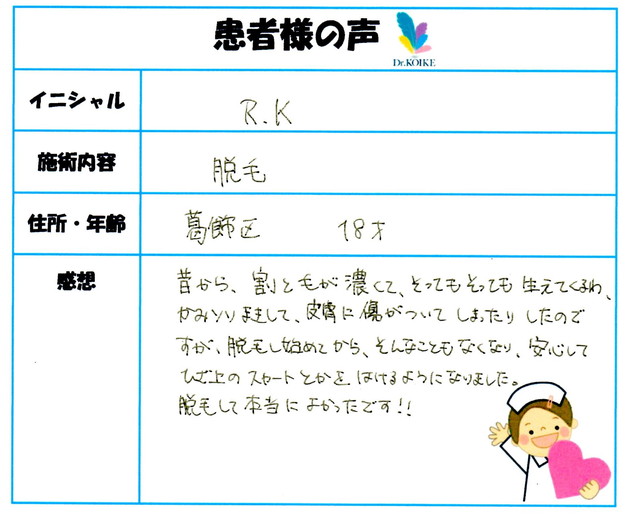 患者様の声
Dr.KOIKE
イニシャル
R.K
施術内容
脱毛
住所・年齢
葛飾区 18才
感想
昔から、割と毛が濃くて、そってもそっても生えてくるわ、
かみそりまけして、皮膚に傷がついてしまったりしたので
すが、脱毛し始めてから、そんなこともなくなり、安心して
ひざ上のスカートとかを、はけるようになりました。
脱毛して本当によかったです!!